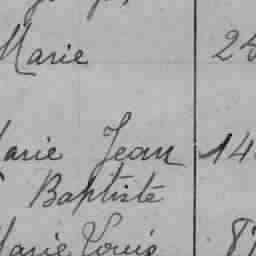 Marie 25
Marie Jean 14
Baptiste
Marie Louis 87